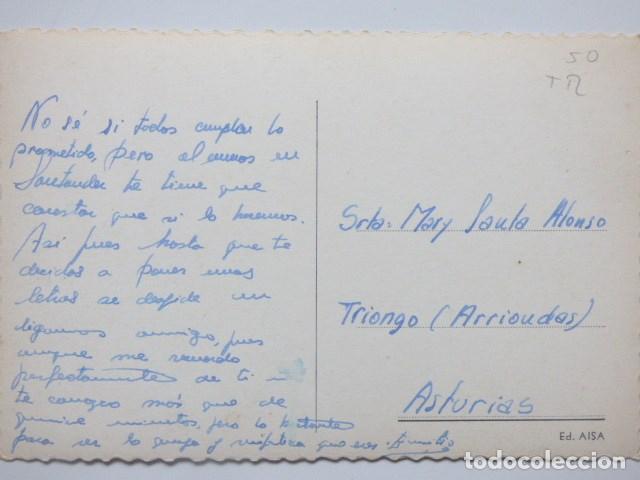 50
No sé si todos cumplan lo
prometido, pero al menos en
Santander te tiene que
constar que si lo hacemos.
Así pues hasta que te
decidas a poner unas
letras se despide un
digamos amigo, pues
aunque me recuerdo
perfectamente de ti
te conozco más que de
quince minutos, pero lo bastante
para ver lo guapa y simpática que eres.
Srta: Mary Paula Alonso
Triongo (Arriondas)
Asturias
Ed. AISA
todocoleccion.net